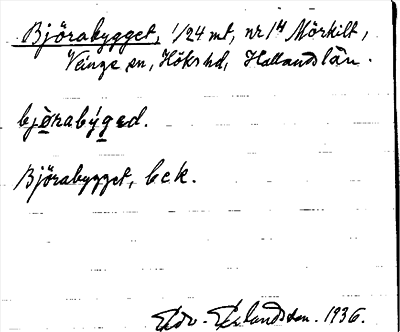 Björabygget, 1/24 mt, nr 1⁴ Mörkilt,
Veinge sn, Höks hd, Hallands län.
bjòrabýged.
Björabygget, bek.
Edv. Erlandsson. 1936.